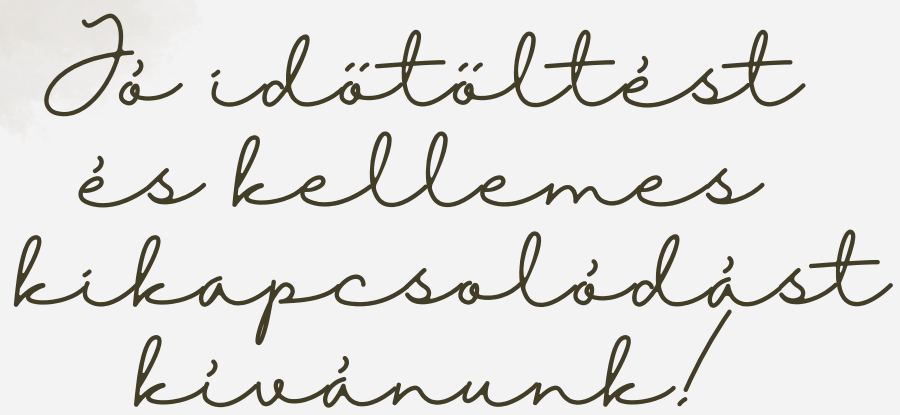 Jó időtöltést
és kellemes
kikapcsolódást
kívánunk!